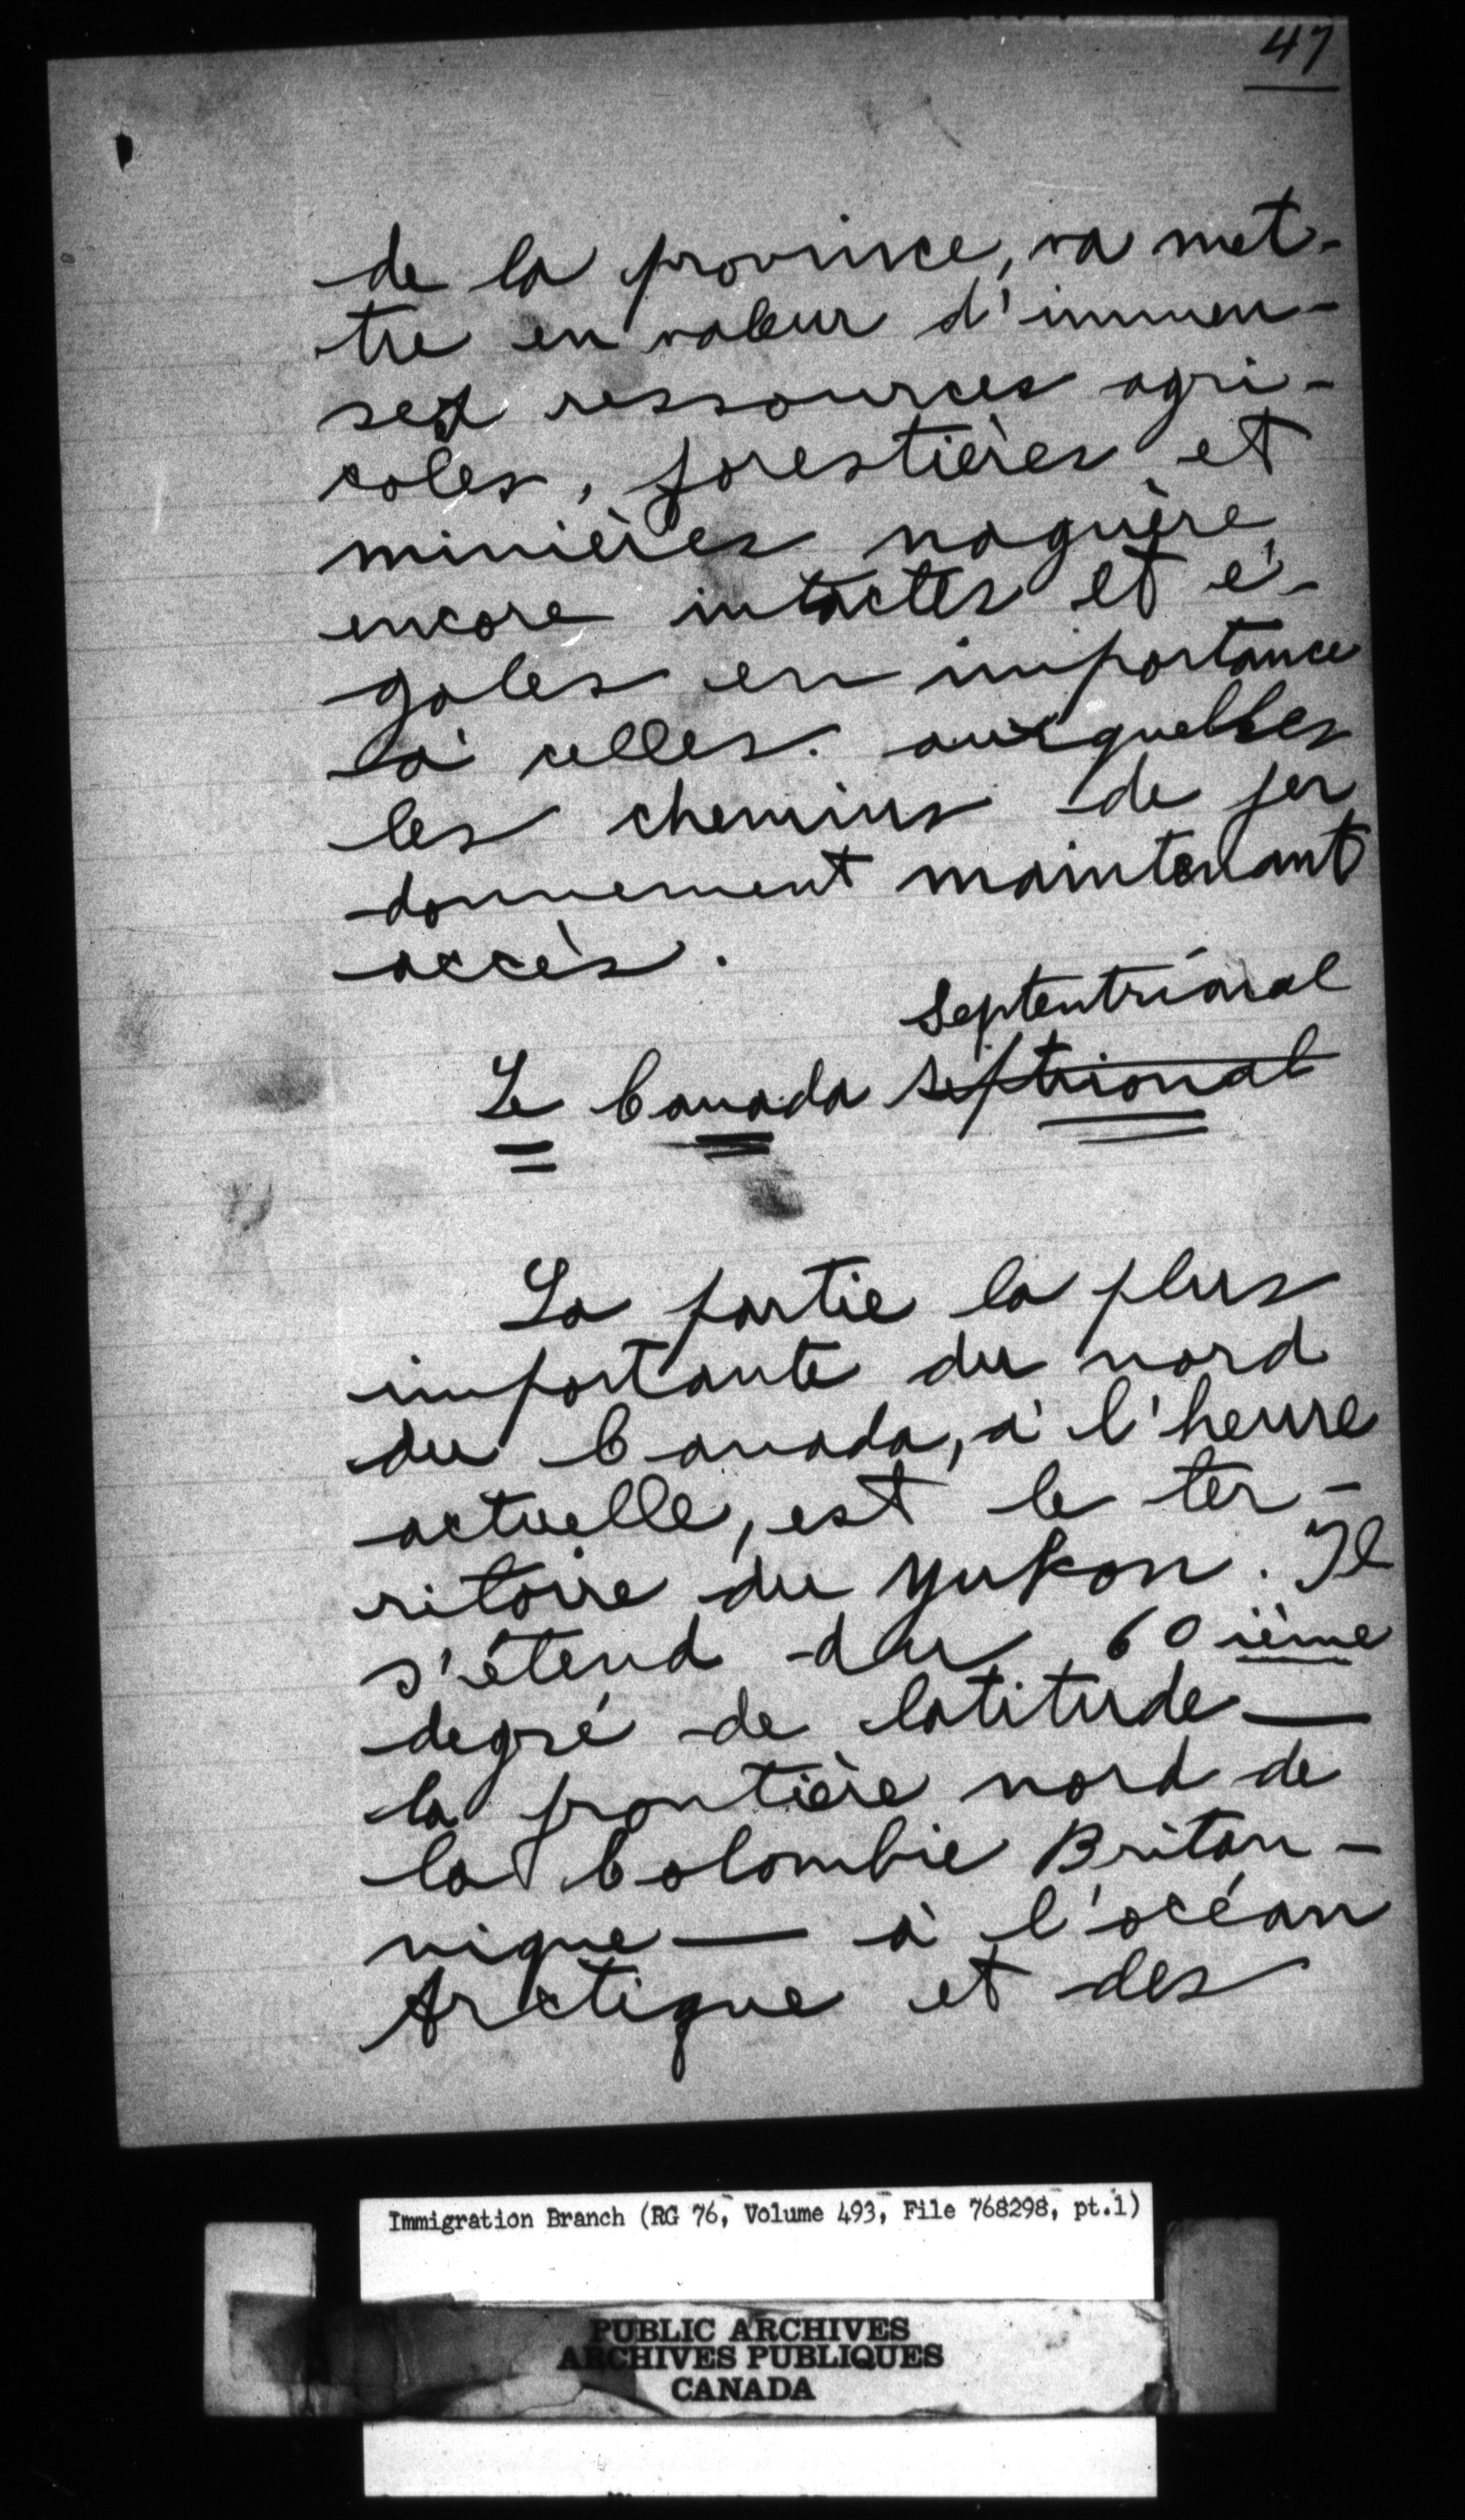 47
de la province, va met-
tre en valeur d'immen-
ses ressources agri-
coles, forestières et
minières naguère
encore intactes et é-
gales en importance
à celles. auxquelles
les chemins de fer
donnement maintenant
accès.
Septentrional
Le Canada septrional
La partie la plus
importante du nord
du Canada, à l'heure
actuelle, est le ter-
ritoire du Yukon. Il
s'étend du 60 ième
degré de latitude —
la frontière nord de
la Colombie Britan-
nique — à l'océan
Arctique et des
Immigration Branch (RG 76, Volume 493, File 768298, pt.1)
PUBLIC ARCHIVES
ARCHIVES PUBLIQUES
CANADA